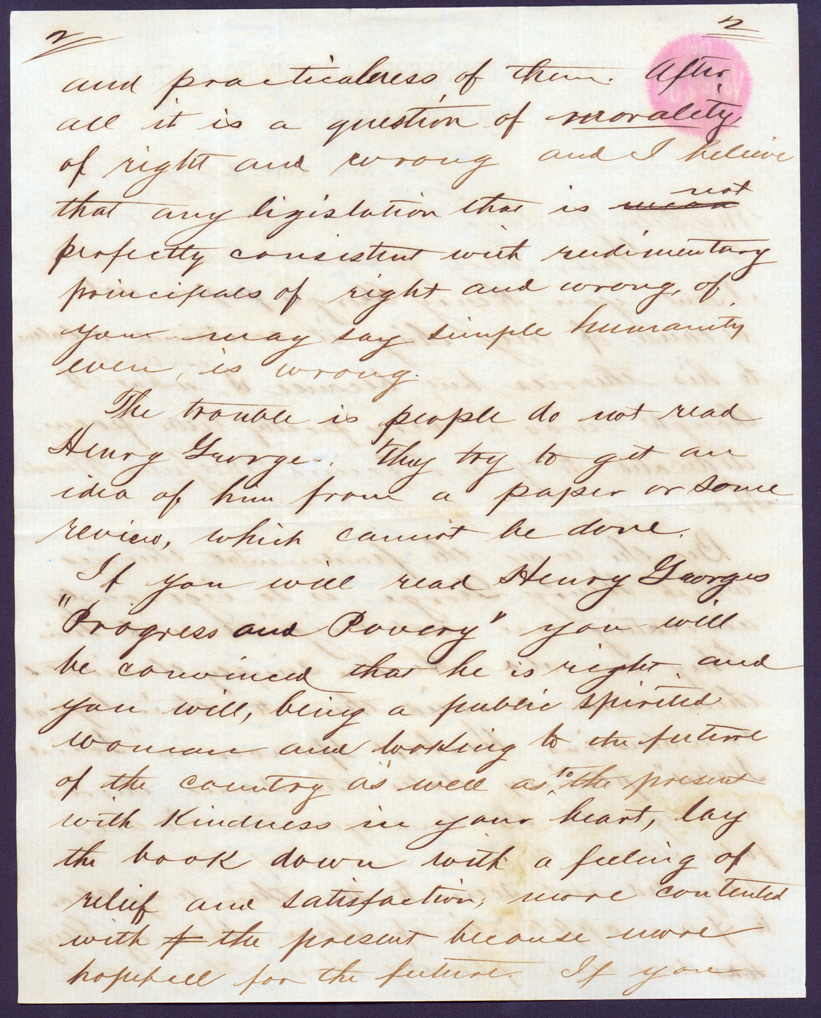 2 2
and practicalness of them. After
all it is a question of morality,
of right and wrong and I believe
not
that any ligislation that is mean
perfectly consistent with rudimentary
principals of right and wrong, of,
you may say simple humanity
even, is wrong.
The trouble is people do not read
Henry George. They try to get an
idea of him from a paper or some
review, which cannot be done.
If you will read Henry Georges
"Progress and Povery" you will
be convinced that he is right and
you will, being a public spirited
woman and looking to the future
of the country as well as to the present
with kindness in your heart, lay
the book down with a feeling of
relief and satisfaction, more contented
with the present because more
hopefull for the future. If you